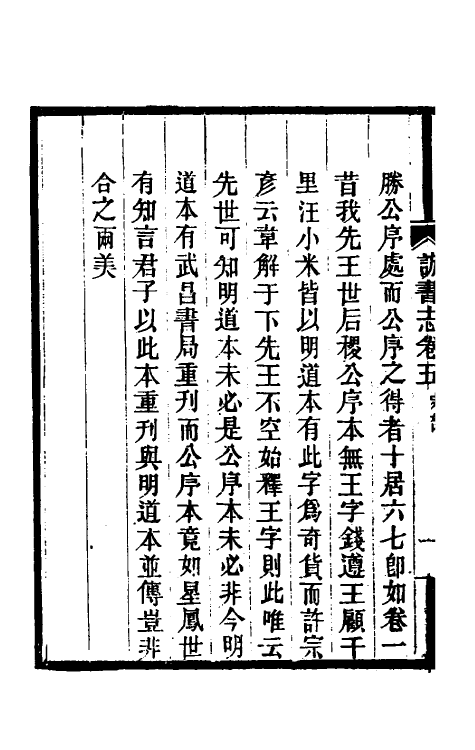 訪書志卷五
勝公序處而公序之得者十居六七卽如卷一
昔我先王世后稷公序本無王字錢遵王顧千
里汪小米皆以明道本有此字爲奇貨而許宗
彥云韋解于下先王不空始釋王字則此唯云
先世可知明道本未必是公序本未必非今明
道本有武昌書局重刊而公序本竟如星鳳世
有知言君子以此本重刊與明道本並傳豈非
合之兩美